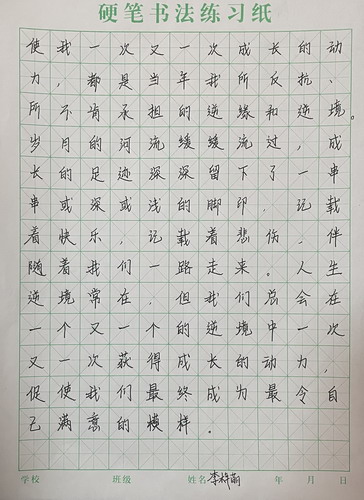 硬笔书法练习纸
使我一次又一次成长的动
力，都是当年我所反抗、
所不肯承担的逆缘和逆境。
岁月的河流缓缓流过，成
长的足迹深深留下了一串
串或深或浅的脚印，记载
着快乐，记载着悲伤，伴
随着我们一路走来。人生
逆境常在，但我们总会在
一个又一个的逆境中一次
又一次获得成长的动力，
促使我们最终成为最令自
己满意的模样。
学校 班级 姓名 年 月 日